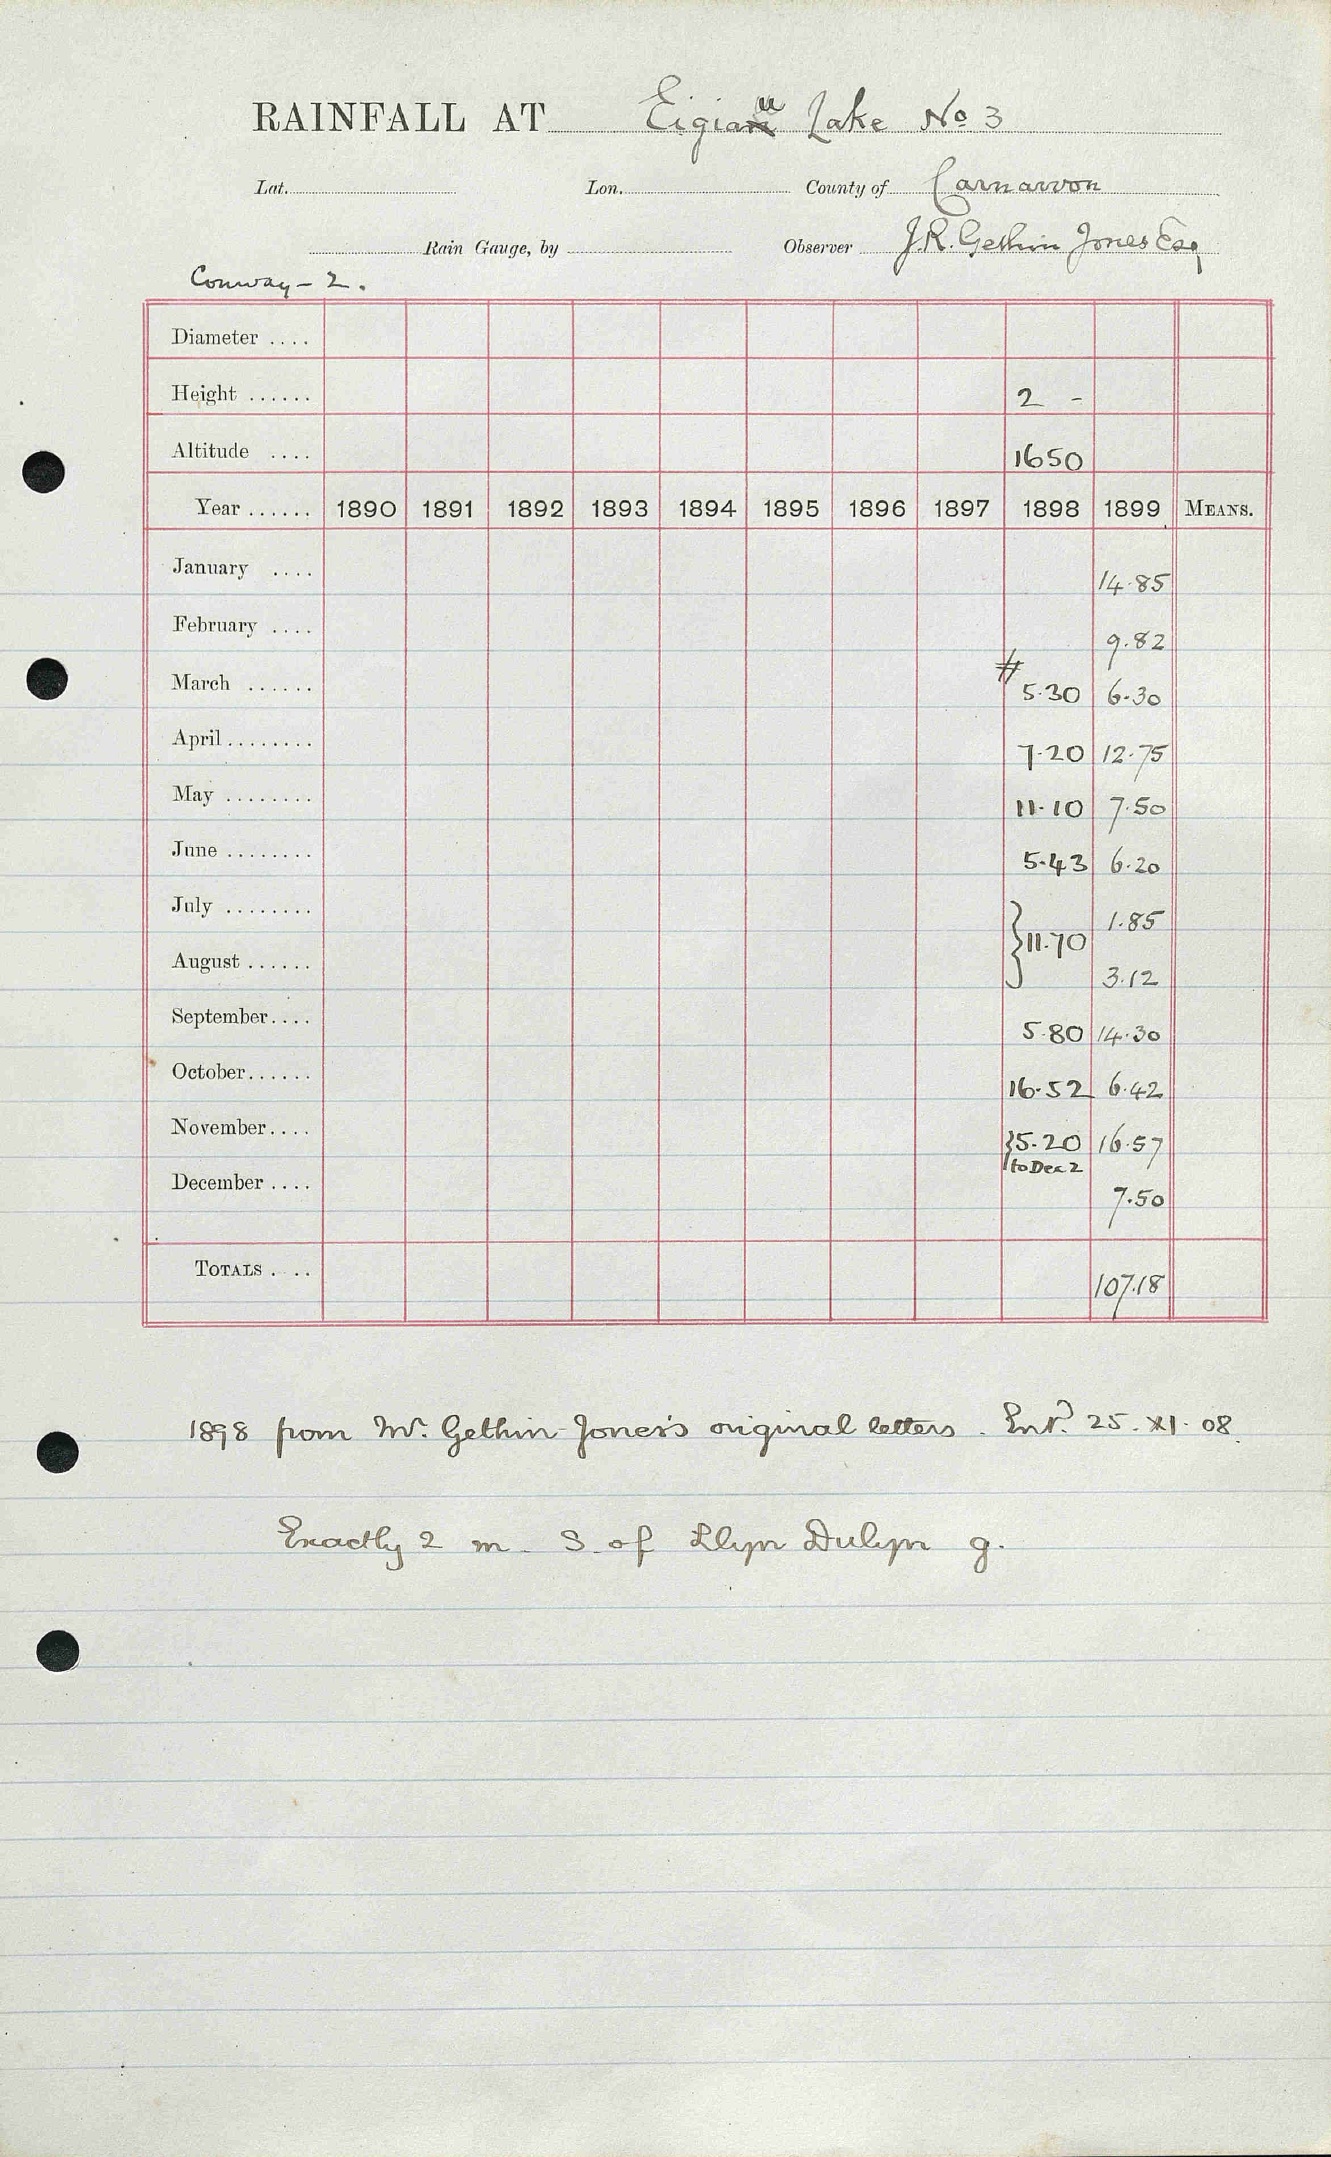 RAINFALL AT Eigiau Lake No 3
Lat. Lon. County of Carnarvon
Rain Gauge, by Observer J.R. Gethin Jones Esq
Conway - 2.
Diameter ....
Height ...... 2 -
Altitude .... 1650
Year ...... 1890 1891 1892 1893 1894 1895 1896 1897 1898 1899 MEANS.
January .... 14.85
February .... 9.82
March ...... # 5.30 6.30
April ........ 7.20 12.75
May ........ 11.10 7.50
June ........ 5.43 6.20
July ........ 1.85
} 11.70
August ...... 3.12
September.... 5.80 14.30
October...... 16.52 6.42
November.... } 5.20 16.57
to Dec 2
December .... 7.50
TOTALS .... 107.18
1898 from Mr. Gethin Jones's original letters. Entd. 25. XI. 08.
Exactly 2 m. S. of Llyn Dulyn g.